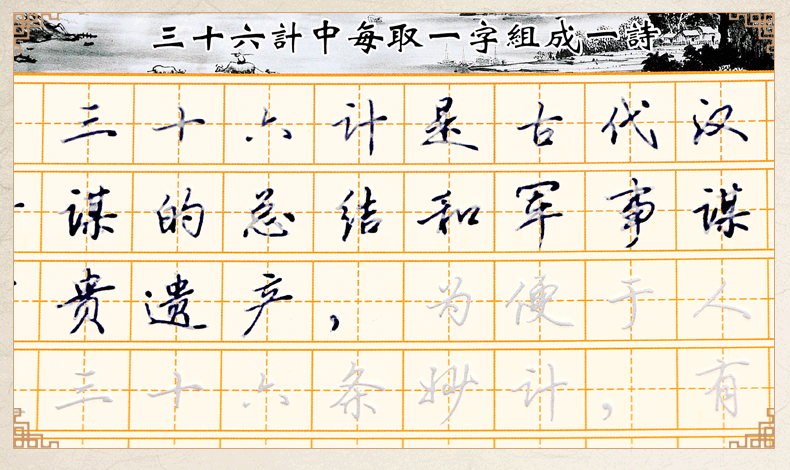 三十六計中每取一字組成一詩
三十六计是古代汉
谋的总结和军事谋
贵遗产，为便于人
三十六条妙计，有